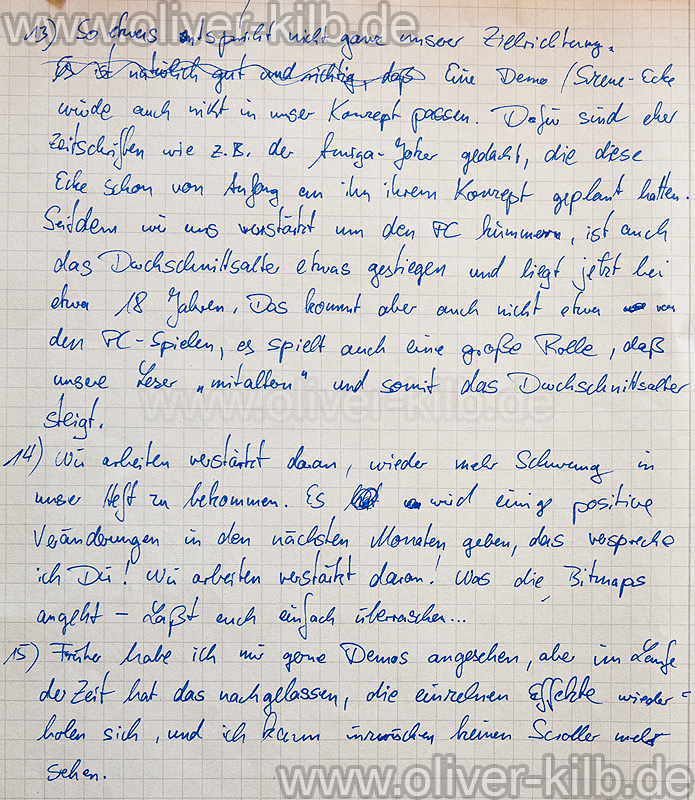 www.oliver-kilb.de
13) So etwas entspricht nicht ganz unserer Zielrichtung.
Es ist natürlich gut und richtig, daß Eine Demo/Scene-Ecke
würde auch nicht in unser Konzept passen. Dafür sind eher
Zeitschriften wie z.B. der Amiga-Joker gedacht, die diese
Ecke schon von Anfang an in ihrem Konzept geplant hatten.
Seitdem wir uns verstärkt um den PC kümmern, ist auch
das Durchschnittsalter etwas gestiegen und liegt jetzt bei
etwa 18 Jahren. Das kommt aber auch nicht etwa von
den PC-Spielen, es spielt auch eine große Rolle, daß
unsere Leser „mitaltern" und somit das Durchschnittsalter
www.oliver-kilb.de
steigt.
14) Wir arbeiten verstärkt daran, wieder mehr Schwung in
unser Heft zu bekommen. Es wird einige positive
Veränderungen in den nächsten Monaten geben, das verspreche
ich Dir! Wir arbeiten verstärkt daran! Was die Bitmaps
angeht – Laßt euch einfach überraschen...
15) Früher habe ich mir gerne Demos angesehen, aber im Laufe
der Zeit hat das nachgelassen, die einzelnen Effekte wieder-
holen sich, und ich kann inzwischen keinen Scroller mehr
sehen.
www.oliver-kilb.de